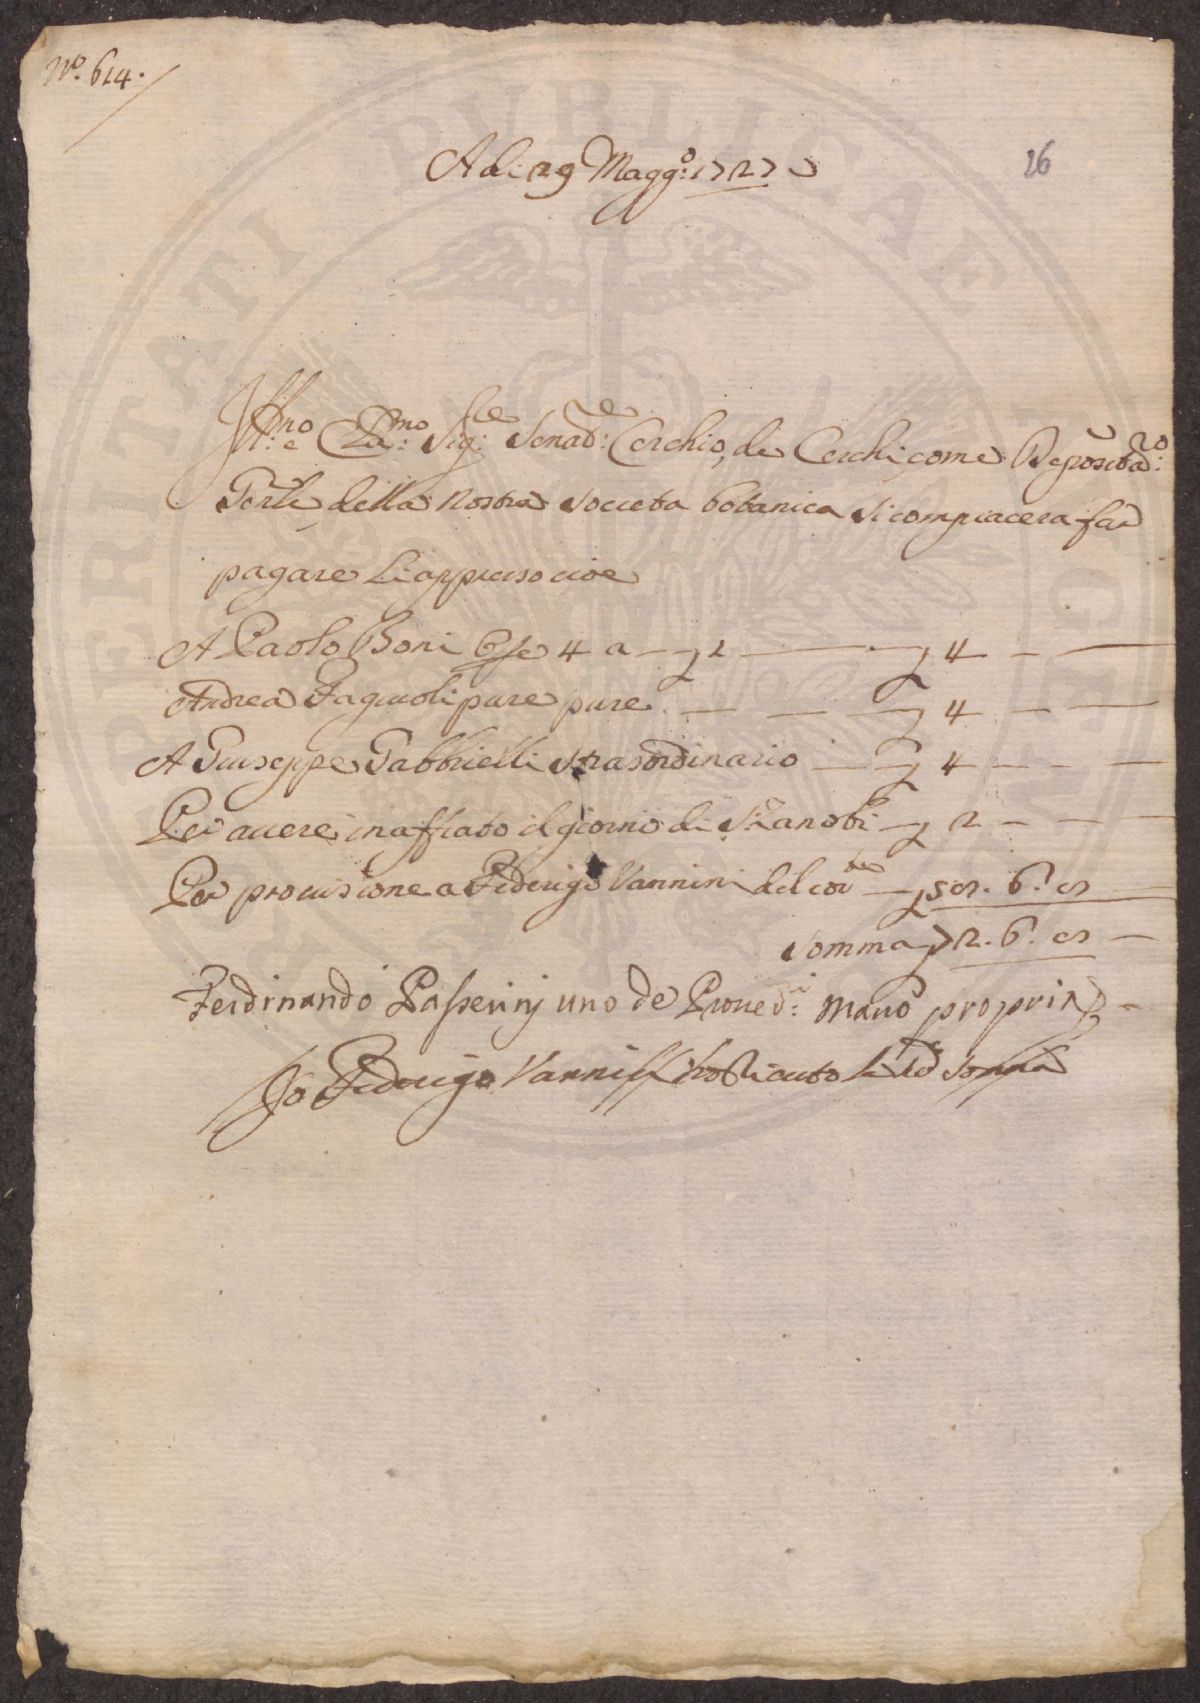 No. 614.
26
A di 29 Magg:o 1727
Ill:mo e Cla:mo Sig:re Senad:re Cerchio de Cerchi come Depositar:o
Gen:le della nostra Societa botanica si compiacera far
pagare li appresso cioe
A Paolo Boni Op:e 4 a — £ 1 — £ 4 —
Andrea Fagiuoli pure pure — £ 4 —
A Giuseppe Gabbrielli straordinario — £ 4 —
Per avere inaffiato il giorno di S: Zanobi — £ 2 —
Per provisione a Federigo Vannini del cor:te — £ 58. 6. 8
Somma £ 72. 6. 8 —
Ferdinando Passerinj uno de Proved:ri mano propria
Io Federigo Vannini ho riceuto la d:a somma
PERITATI PUBLICAE